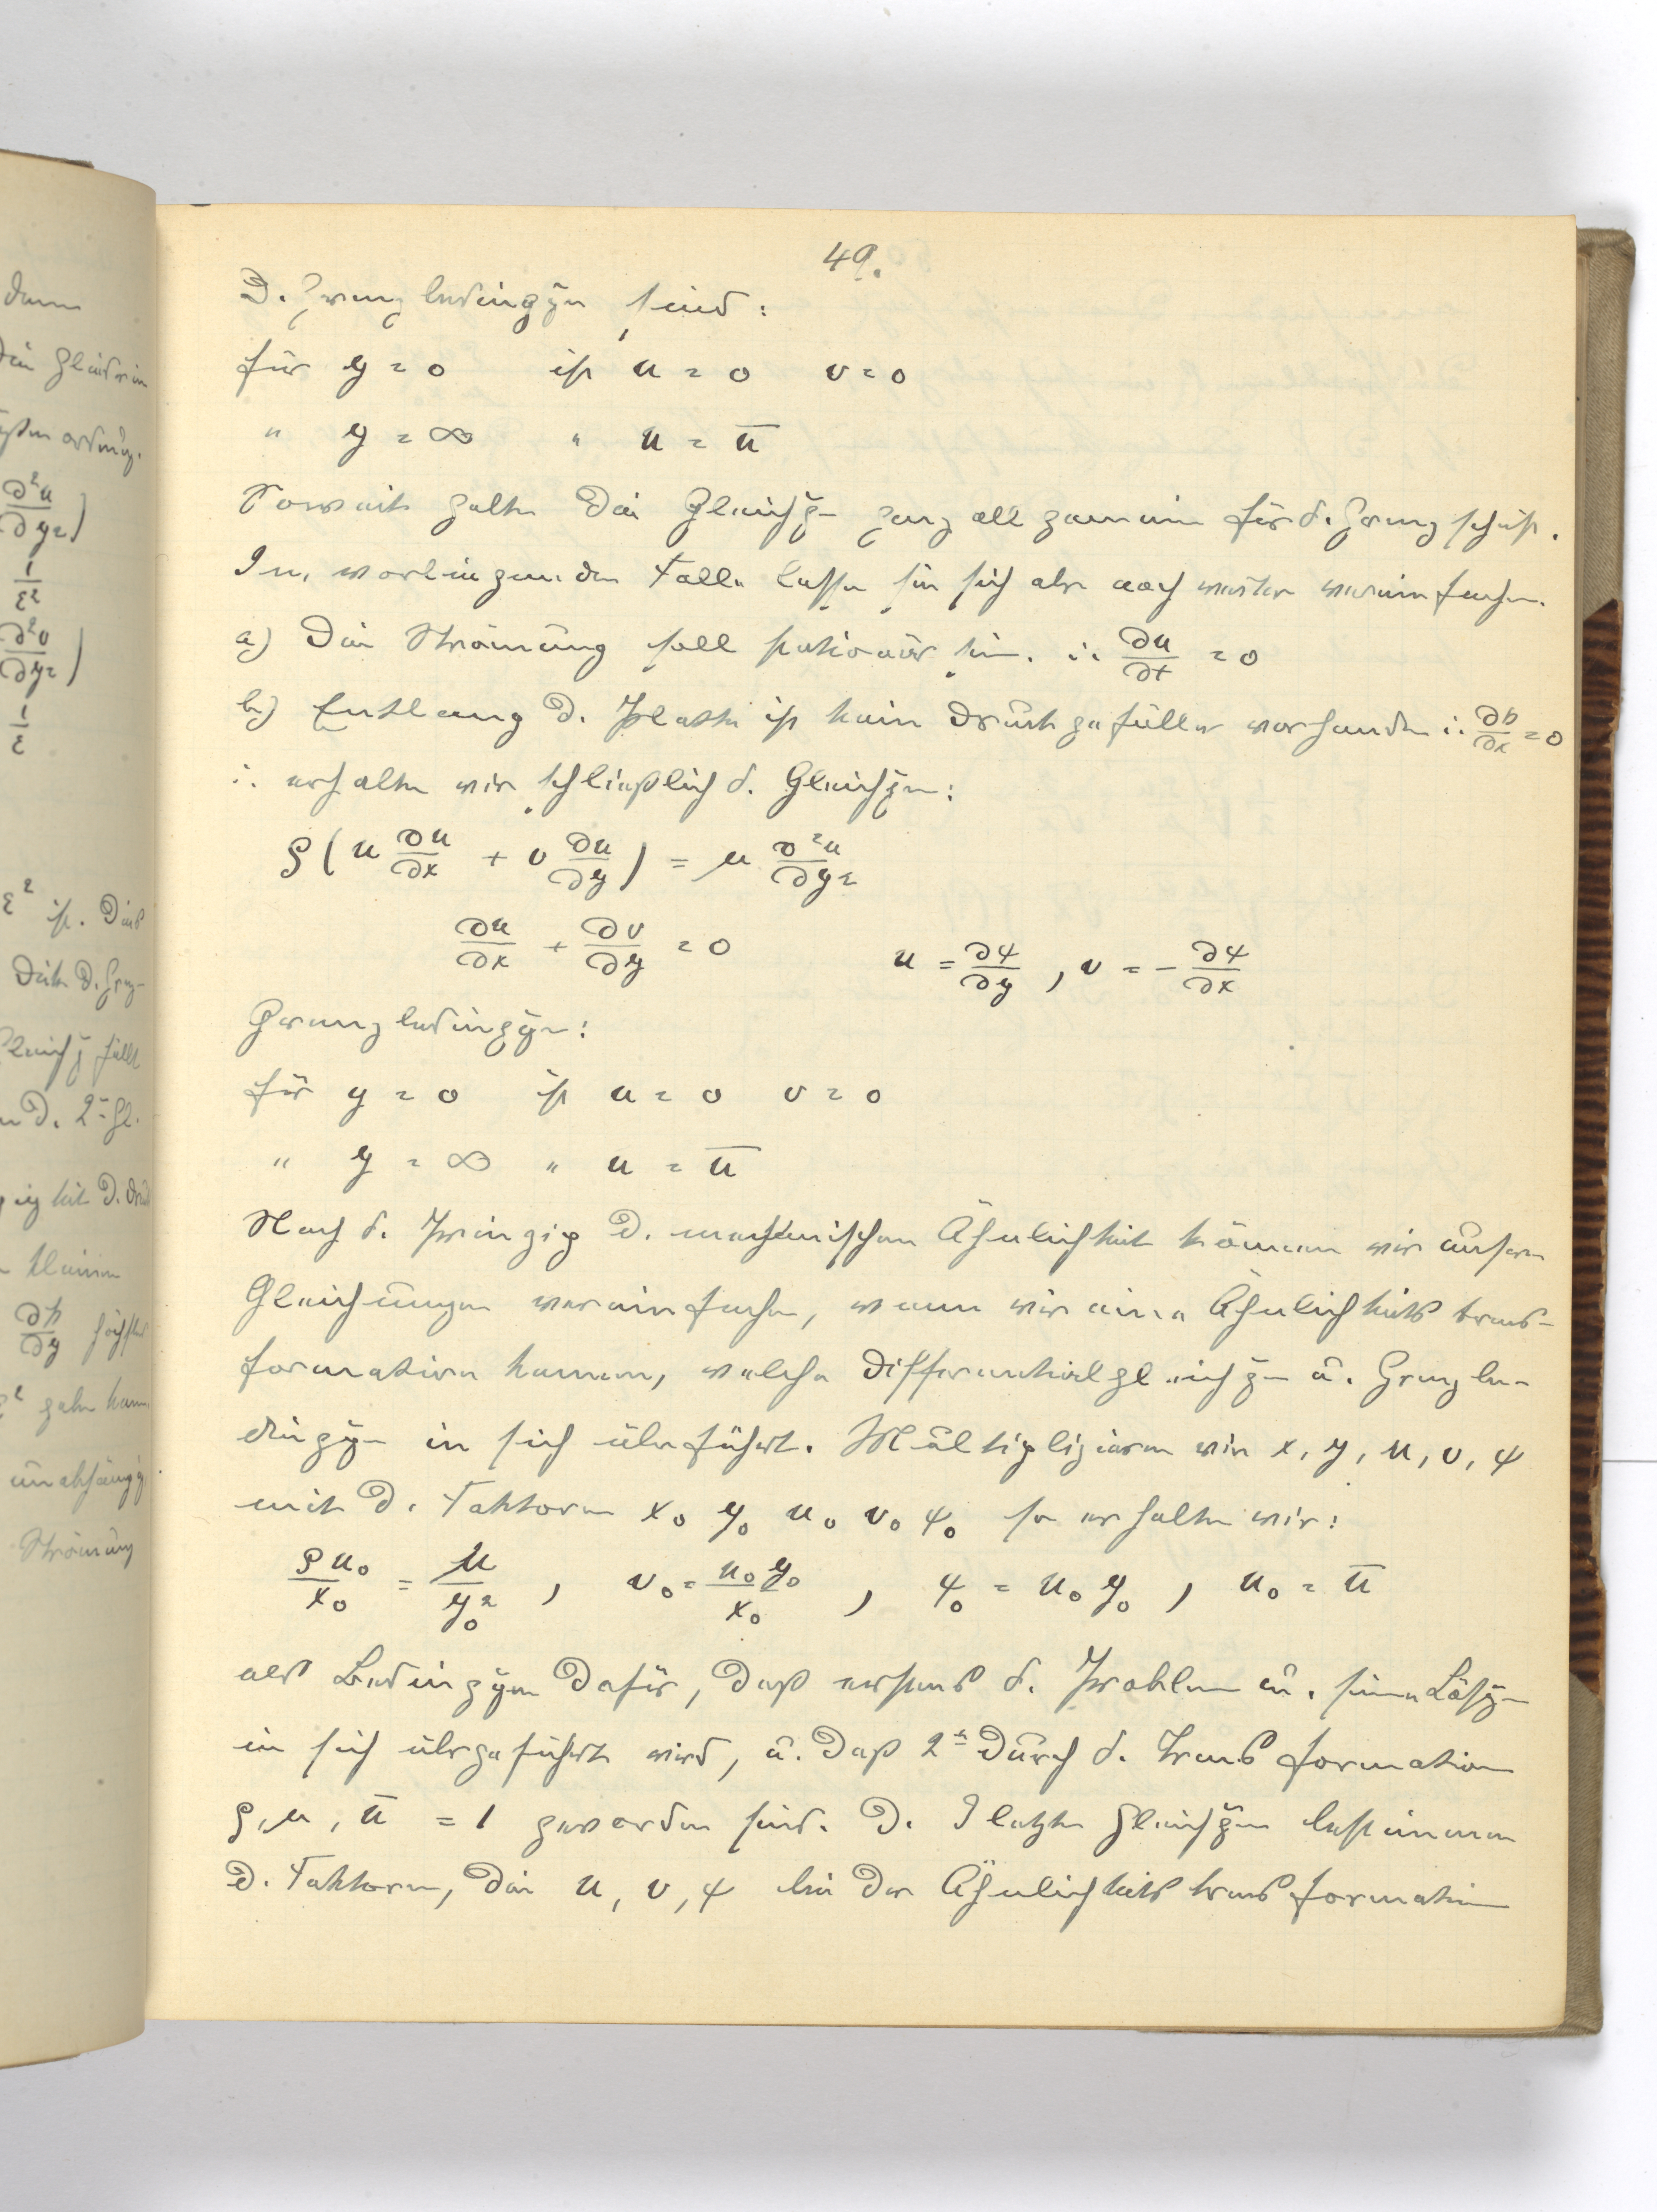 dann
die Glieder in
ordng.
∂²u/∂y²)
1/ε²
∂²v/∂y²)
1/ε
ε² ist. Dies
Dicke d. Grz-
Gleichg fällt
d. 2ᵗᵉ Gl.
igkeit d. Druck
kleinen
∂p/∂y höchstens
ε² gehn kann
unabhängig
Strömung
49.
D. Grenzbedinggn sind:
für y = 0 ist u = 0 v = 0
" y = ∞ " u = ū
Soweit gelten die Gleichg- ganz allgemein für d. Grenzschicht.
Im vorliegenden Falle lassen sie sich aber noch weiter vereinfachen.
a) Die Strömung soll stationär sein. ∴ ∂u/∂t = 0
b) Entlang d. Platte ist kein Druckgefälle vorhanden ∴ ∂p/∂x = 0
∴ erhalten wir schließlich d. Gleichgn:
ρ(u ∂u/∂x + v ∂u/∂y) = μ ∂²u/∂y²
∂u/∂x + ∂v/∂y = 0 u = ∂ψ/∂y , v = - ∂ψ/∂x
Grenzbedinggn:
für y = 0 ist u = 0 v = 0
" y = ∞ " u = ū
Nach d. Prinzip d. mechanischen Ähnlichkeit können wir unsere
Gleichungen vereinfachen, wenn wir eine Ähnlichkeitstrans-
formation kennen, welche Differentialgleichg- u. Grenzbe-
dingg- in sich überführt. Multiplizieren wir x, y, u, v, ψ
mit d. Faktoren x₀ y₀ u₀ v₀ ψ₀ so erhalten wir:
ρu₀/x₀ = μ/y₀² , v₀ = u₀y₀/x₀ , ψ₀ = u₀ y₀ , u₀ = ū
als Bedinggen dafür, daß erstens d. Problem u. seine Lösg-
in sich übergeführt wird, u. daß 2ᵗ durch d. Transformation
ρ, μ, ū = 1 geworden sind. D. 3 letzten Gleichgen bestimmen
d. Faktoren, die u, v, ψ bei der Ähnlichkeitstransformation